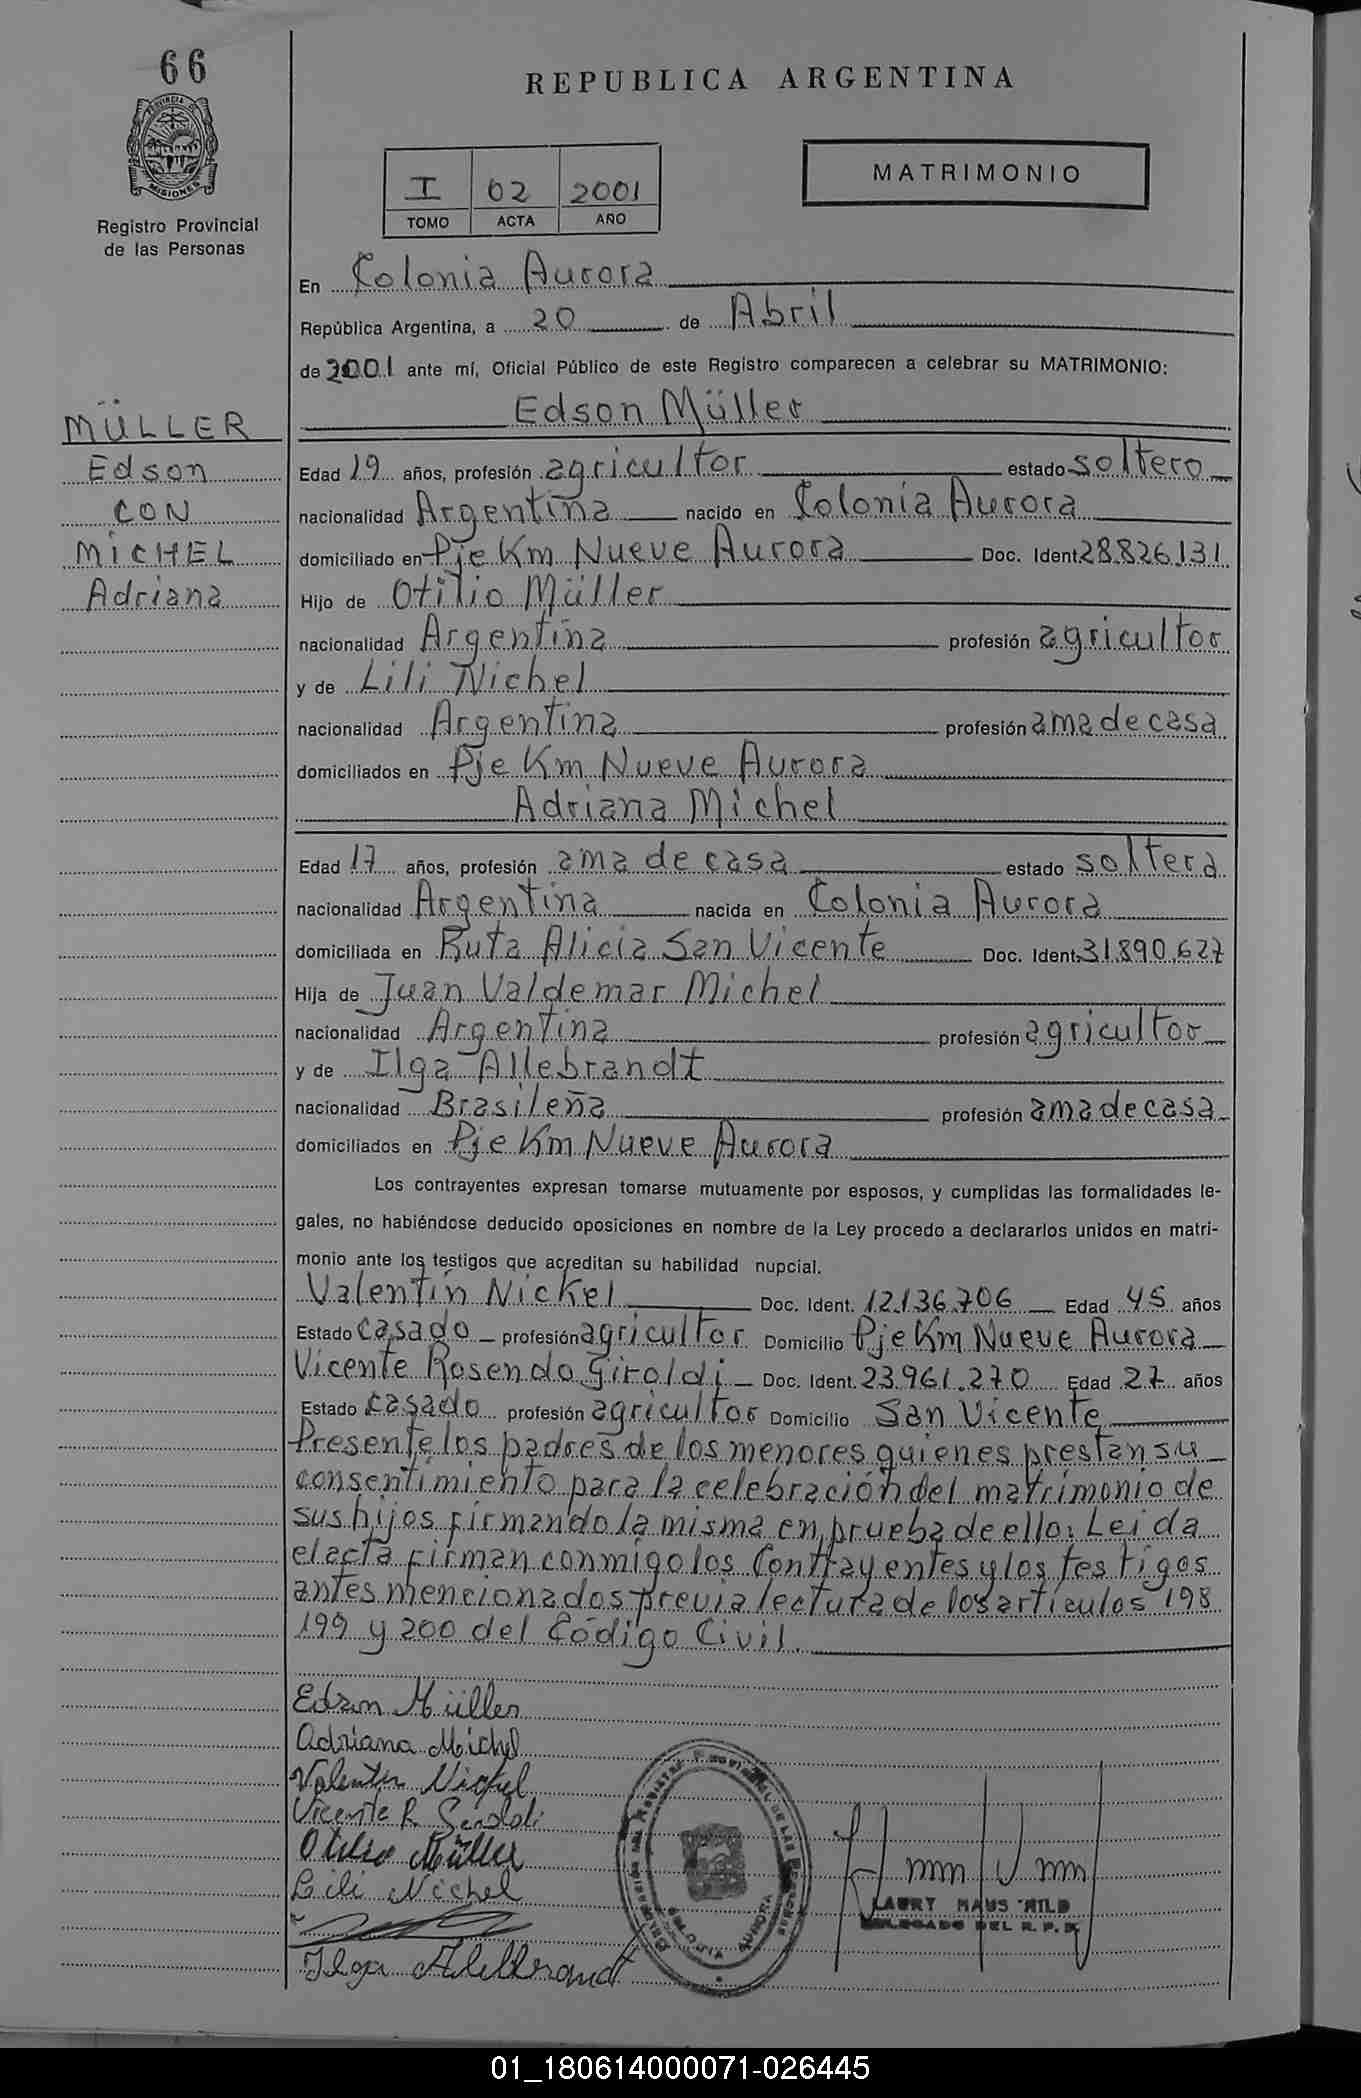 66
REPUBLICA ARGENTINA
PROVINCIA DE MISIONES
Registro Provincial
de las Personas
I 02 2001
TOMO ACTA AÑO
MATRIMONIO
En Colonia Aurora
República Argentina, a 20 de Abril
de 2001 ante mí, Oficial Público de este Registro comparecen a celebrar su MATRIMONIO:
Edson Müller
MÜLLER
Edson
CON
MICHEL
Adriana
Edad 19 años, profesión agricultor estado soltero
nacionalidad Argentina nacido en Colonia Aurora
domiciliado en Pje Km Nueve Aurora Doc. Ident. 28.826.131
Hijo de Otilio Müller
nacionalidad Argentina profesión agricultor
y de Lili Nichel
nacionalidad Argentina profesión ama de casa
domiciliados en Pje Km Nueve Aurora
Adriana Michel
Edad 17 años, profesión ama de casa estado soltera
nacionalidad Argentina nacida en Colonia Aurora
domiciliada en Ruta Alicia San Vicente Doc. Ident. 31.890.627
Hija de Juan Valdemar Michel
nacionalidad Argentina profesión agricultor
y de Ilga Allebrandt
nacionalidad Brasileña profesión ama de casa
domiciliados en Pje Km Nueve Aurora
Los contrayentes expresan tomarse mutuamente por esposos, y cumplidas las formalidades le-
gales, no habiéndose deducido oposiciones en nombre de la Ley procedo a declararlos unidos en matri-
monio ante los testigos que acreditan su habilidad nupcial.
Valentín Nickel Doc. Ident. 12.136.706 Edad 45 años
Estado casado profesión agricultor Domicilio Pje Km Nueve Aurora
Vicente Rosendo Giroldi Doc. Ident. 23.961.270 Edad 27 años
Estado casado profesión agricultor Domicilio San Vicente
Presente los padres de los menores quienes prestan su
consentimiento para la celebración del matrimonio de
sus hijos firmando la misma en prueba de ello: Leida
el acta firman conmigo los contrayentes y los testigos
antes mencionados previa lectura de los artículos 198
199 y 200 del Código Civil.
Edson Müller
Adriana Michel
Valentin Nickel
Vicente R Giroldi
Otilio Müller
Lili Nichel
Ilga Allebrandt
COLONIA AURORA
LAURY HAUS
DELEGADO DEL R. P. P.
01_180614000071-026445